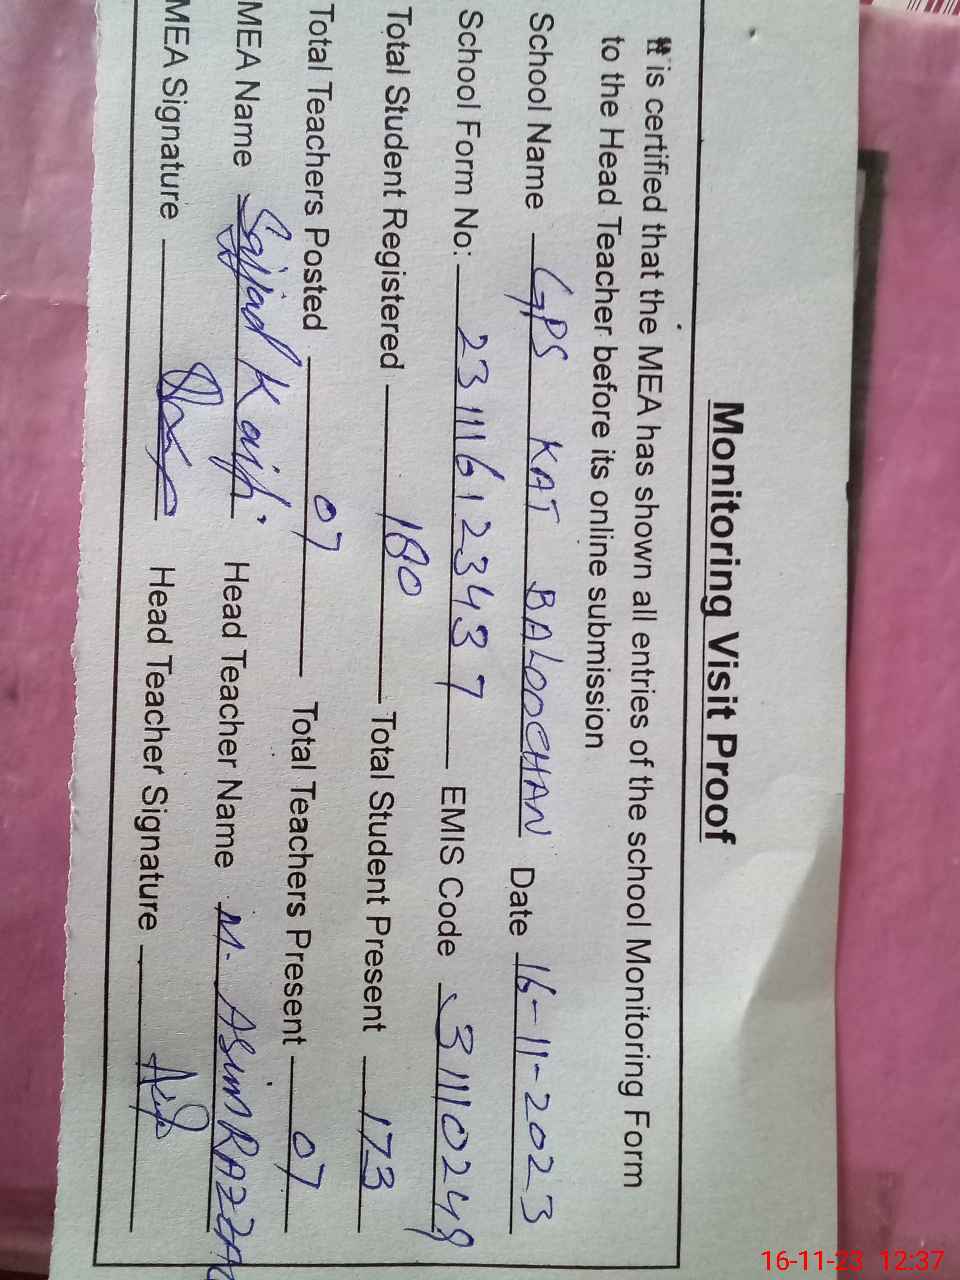 Monitoring Visit Proof
It is certified that the MEA has shown all entries of the school Monitoring Form
to the Head Teacher before its online submission
School Name GPS KAT BALOOCHAN Date 16-11-2023
School Form No: EMIS Code
Total Student Registered 180 Total Student Present 173
Total Teachers Posted 07 Total Teachers Present 07
MEA Name Sajjad Head Teacher Name M. ASIM
MEA Signature Head Teacher Signature
16-11-23 12:37